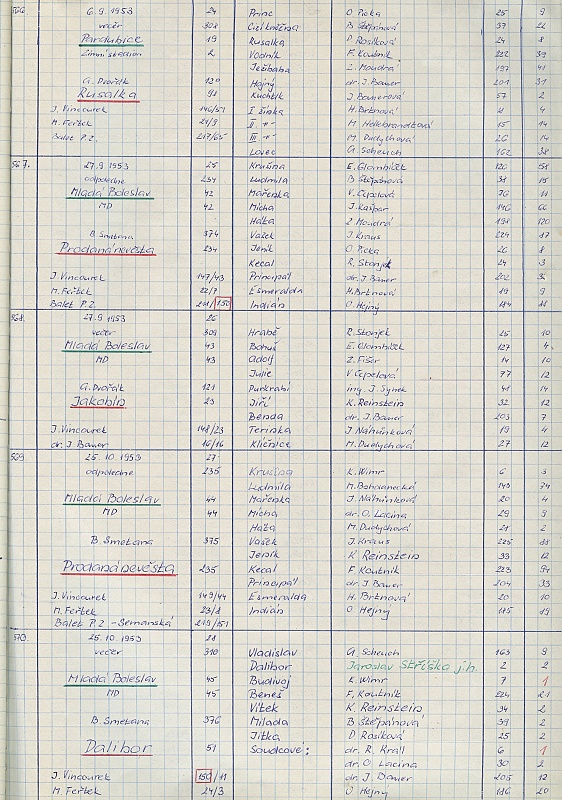 566. 6.9.1953 24 Princ O Picka 25 9
večer 308 Cizí kněžna B Štěpánová 37 22
Pardubice 19 Rusalka D Rosíková 24 8
Zimní stadion 2 Vodník F. Koutník 222 39
Ježibaba Z. Moudrá 197 41
A. Dvořák 120 Hajný dr. J. Bauer 201 31
Rusalka 91 Kuchtík J Bauerová 57 2
J. Vincourek 146/51 I žínka H. Brtnová 4
M. Feřtek 21/9 II M Hellebrandtová 15 14
Balet P.Z. 217/65 III M. Dudychová 26 14
Lovec G Scheuch 162 38
567. 27.9.1953 25 Krušina E. Glombíček 126 58
odpoledne 234 Ludmila B Štěpánová 38 15
Mladá Boleslav 42 Mařenka V. Čepelová 76 11
MD 42 Mícha J. Kašpar 146 66
Háta Z Moudrá 198 120
B. Smetana 374 Vašek J. Kraus 224 17
Prodaná nevěsta 234 Jeník O. Picka 26 8
Kecal R. Stanjek 24 3
J. Vincourek 147/43 Principál dr. J. Bauer 202 32
M. Feřtek 22/7 Esmeralda H. Brtnová 19 9
Balet P.Z. 218/150 Indián O. Hejný 114 11
568. 27.9.1953 26 Hrabě R. Stanjek 25 10
večer 309 Bohuš E. Glombíček 127 4
Mladá Boleslav 43 Adolf Z. Fišer 14 10
MD 43 Julie V. Čepelová 77 12
A. Dvořák 121 Purkrabí ing. J. Synek 41 14
Jakobín 23 Jiří K. Reinstein 32 12
Benda dr. J. Bauer 203 7
J. Vincourek 148/23 Terinka J. Náhunková 19 4
dr. J. Bauer 16/16 Klíčnice M. Dudychová 27 12
569 25.10.1953 27 Krušina K. Wimr 6 3
odpoledne 235 Ludmila M. Bohdanecká 143 74
Mladá Boleslav 44 Mařenka J. Náhunková 20 4
MD 44 Mícha dr. O. Lacina 29 9
Háta M. Dudychová 28 2
B. Smetana 375 Vašek J. Kraus 225 18
Prodaná nevěsta 235 Jeník K. Reinstein 33 12
Kecal F. Koutník 223 94
Principál dr. J. Bauer 204 33
J. Vincourek 149/44 Esmeralda H. Brtnová 20 10
M. Feřtek 23/8 Indián O Hejný 115 19
Balet P.Z. - Semanská 219/151
570. 25.10.1953 28 Vladislav G. Scheuch 163 9
večer 310 Dalibor Jaroslav Stříško j.h. 2 2
Mladá Boleslav 45 Budivoj K. Wimr 7 1
MD 45 Beneš F. Koutník 224 21
Vítek K. Reinstein 34 2
B. Smetana 376 Milada B. Štěpánová 39 2
Dalibor 51 Jitka D Rosíková 25 2
Soudcové: dr. R. Krall 6 1
dr. O. Lacina 30 2
J. Vincourek 150/11 dr. J. Bauer 205 12
M. Feřtek 24/3 O Hejný 116 20